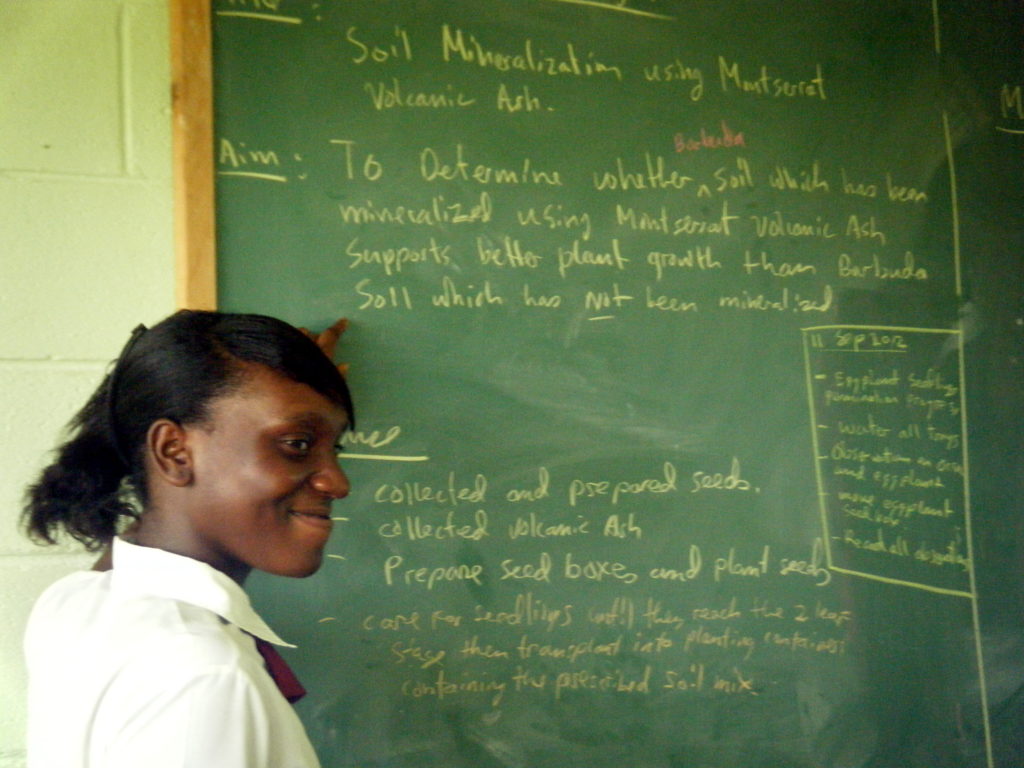 Soil Mineralization using Montserrat
Volcanic Ash.
Barbuda
Aim: To Determine whether ^ soil which has been
mineralized using Montserrat Volcanic Ash
Supports better plant growth than Barbuda
Soil which has Not been mineralized
- collected and prepared seeds.
- collected volcanic Ash
- Prepare seed boxes and plant seeds
- care for seedlings until they reach the 2 leaf
stage then transplant into planting containers
containing the prescribed soil mix
11 Sep 2012
- Eggplant seedlings
germination
- water all trays
- Observation on
and eggplant
- move eggplant
- Read all
M